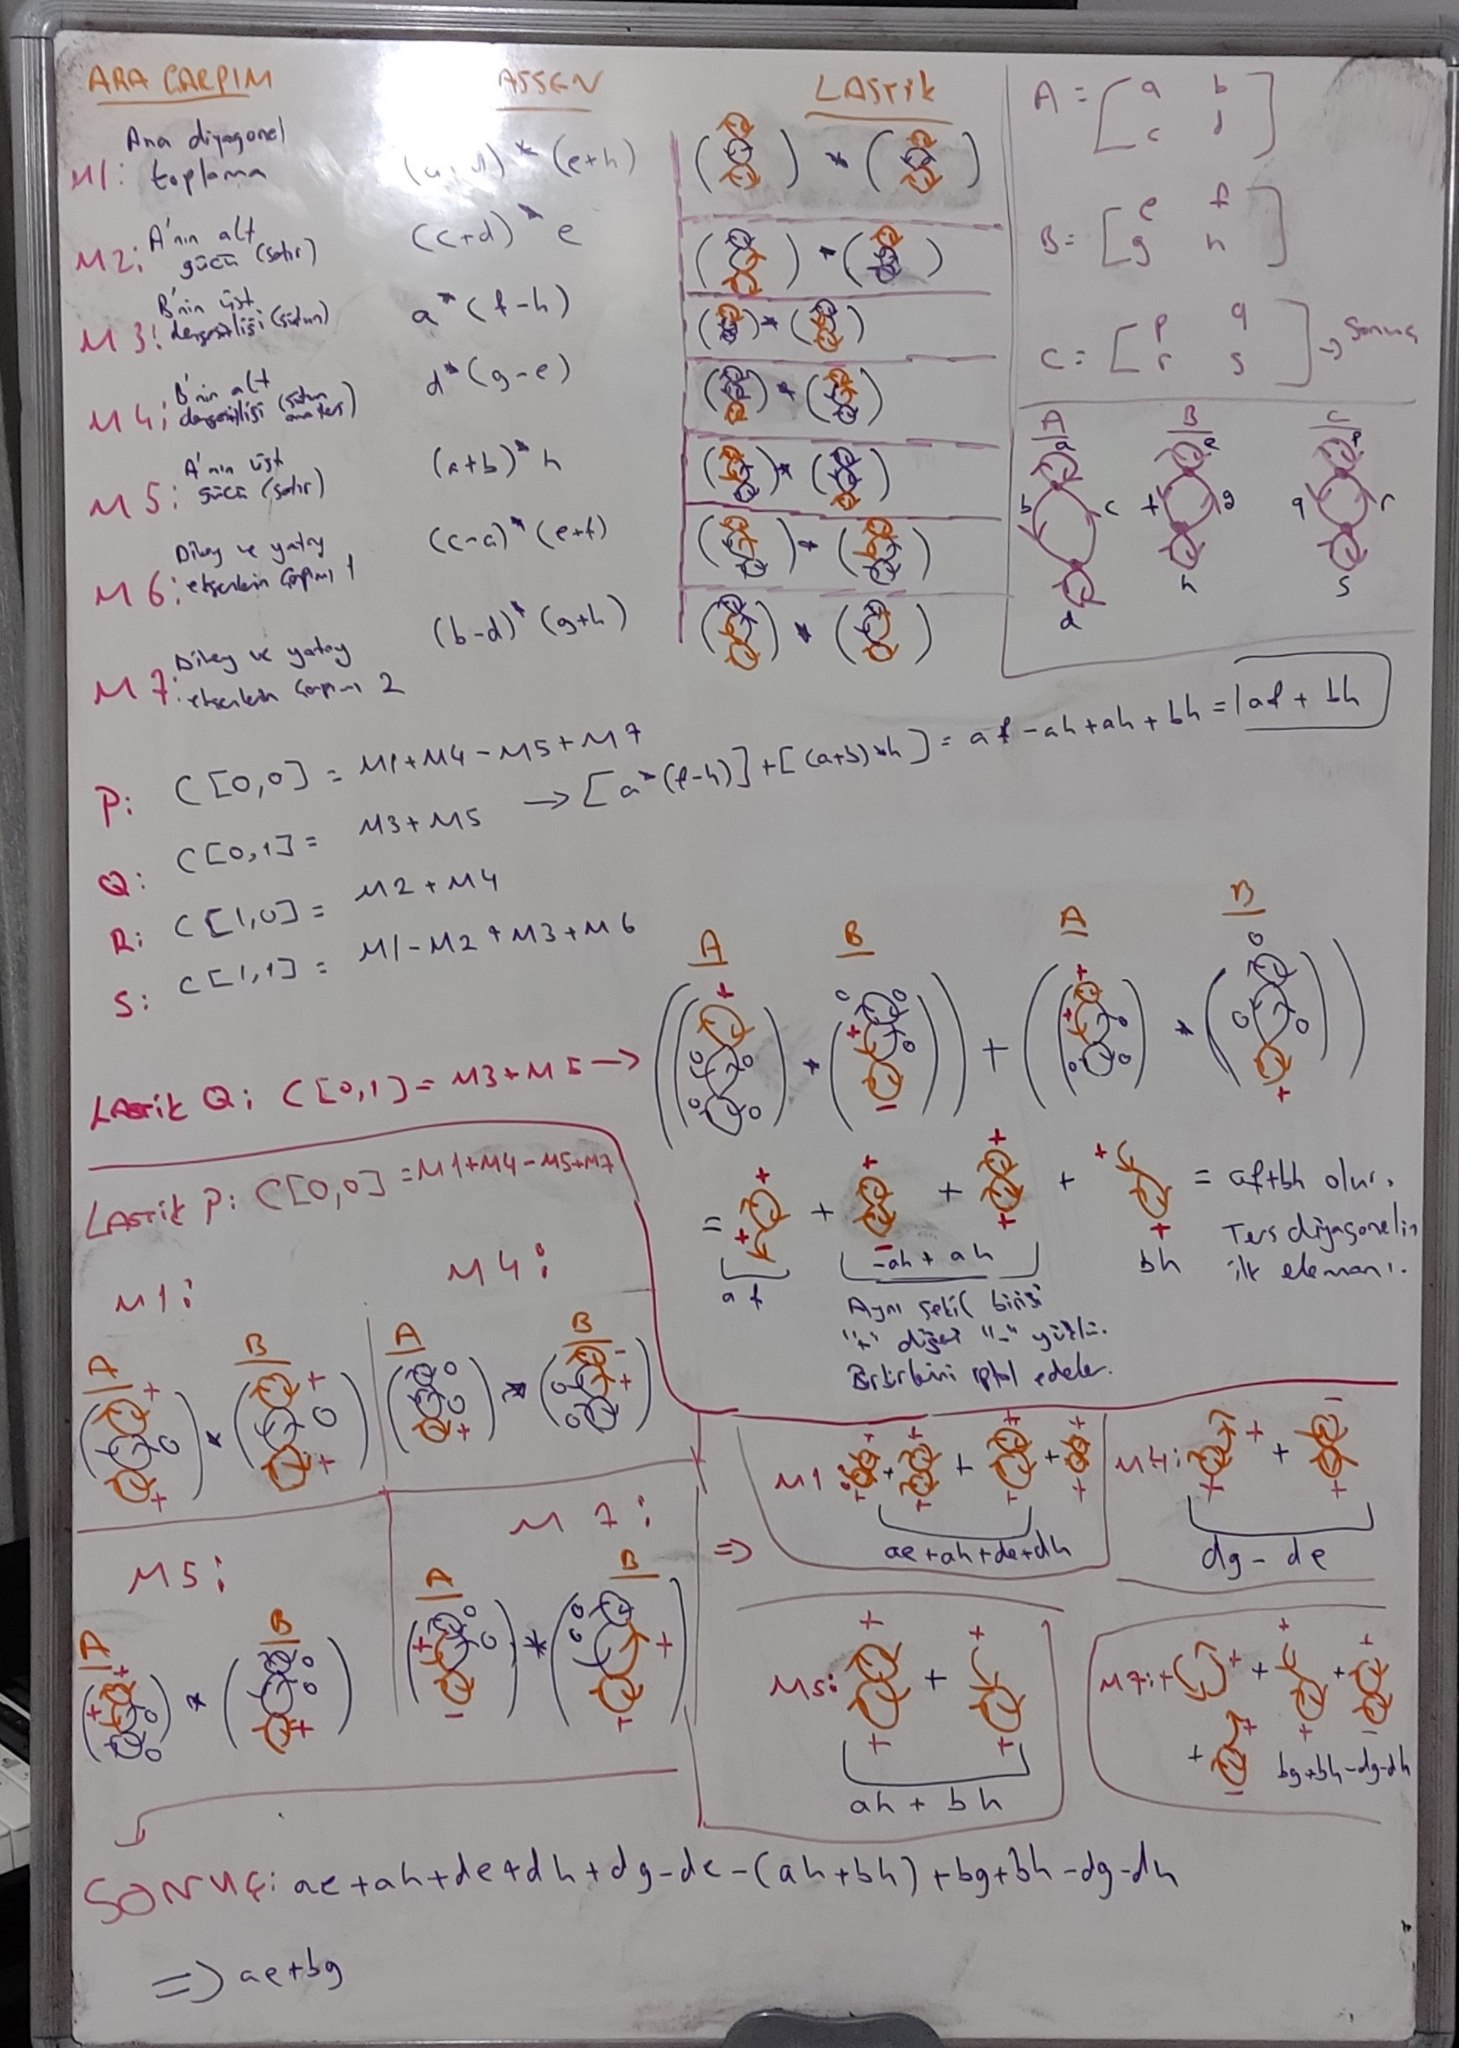 ARA ÇARPIM
ASSEN
LASTİK
M1: Ana diyagonel toplama
(a+d) * (e+h)
M2: A'nın alt gücü (satır)
(c+d) * e
M3: B'nin üst (sütun)
a * (f-h)
M4: B'nin alt
d * (g-e)
M5: A'nın üst gücü (satır)
(a+b) * h
M6: Dikey ve yatay eksenlerin Çarpımı 1
(c-a) * (e+f)
M7: Dikey ve yatay eksenlerin Çarpımı 2
(b-d) * (g+h)
A = [ a b
c d ]
B = [ e f
g h ]
C = [ p q
r s ] → Sonuç
A B C
a e p
b c f g q r
d h s
P: C[0,0] = M1+M4-M5+M7
Q: C[0,1] = M3+M5 → [a*(f-h)]+[(a+b)*h] = af-ah+ah+bh = af+bh
R: C[1,0] = M2+M4
S: C[1,1] = M1-M2+M3+M6
A B A B
Lastik Q: C[0,1] = M3+M5 →
= af + -ah + ah + bh = af+bh olur.
Ters diyagonelin
ilk elemanı.
Aynı şekil birisi
"+" diğeri "-" yüklü.
Birbirlerini iptal ederler.
Lastik P: C[0,0] = M1+M4-M5+M7
M1: M4:
A B A B
M5: M7:
A B A B
⇒
M1: ae+ah+de+dh
M4: dg-de
M5: ah+bh
M7: bg+bh-dg-dh
SONUÇ: ae+ah+de+dh+dg-de-(ah+bh)+bg+bh-dg-dh
⇒ ae+bg